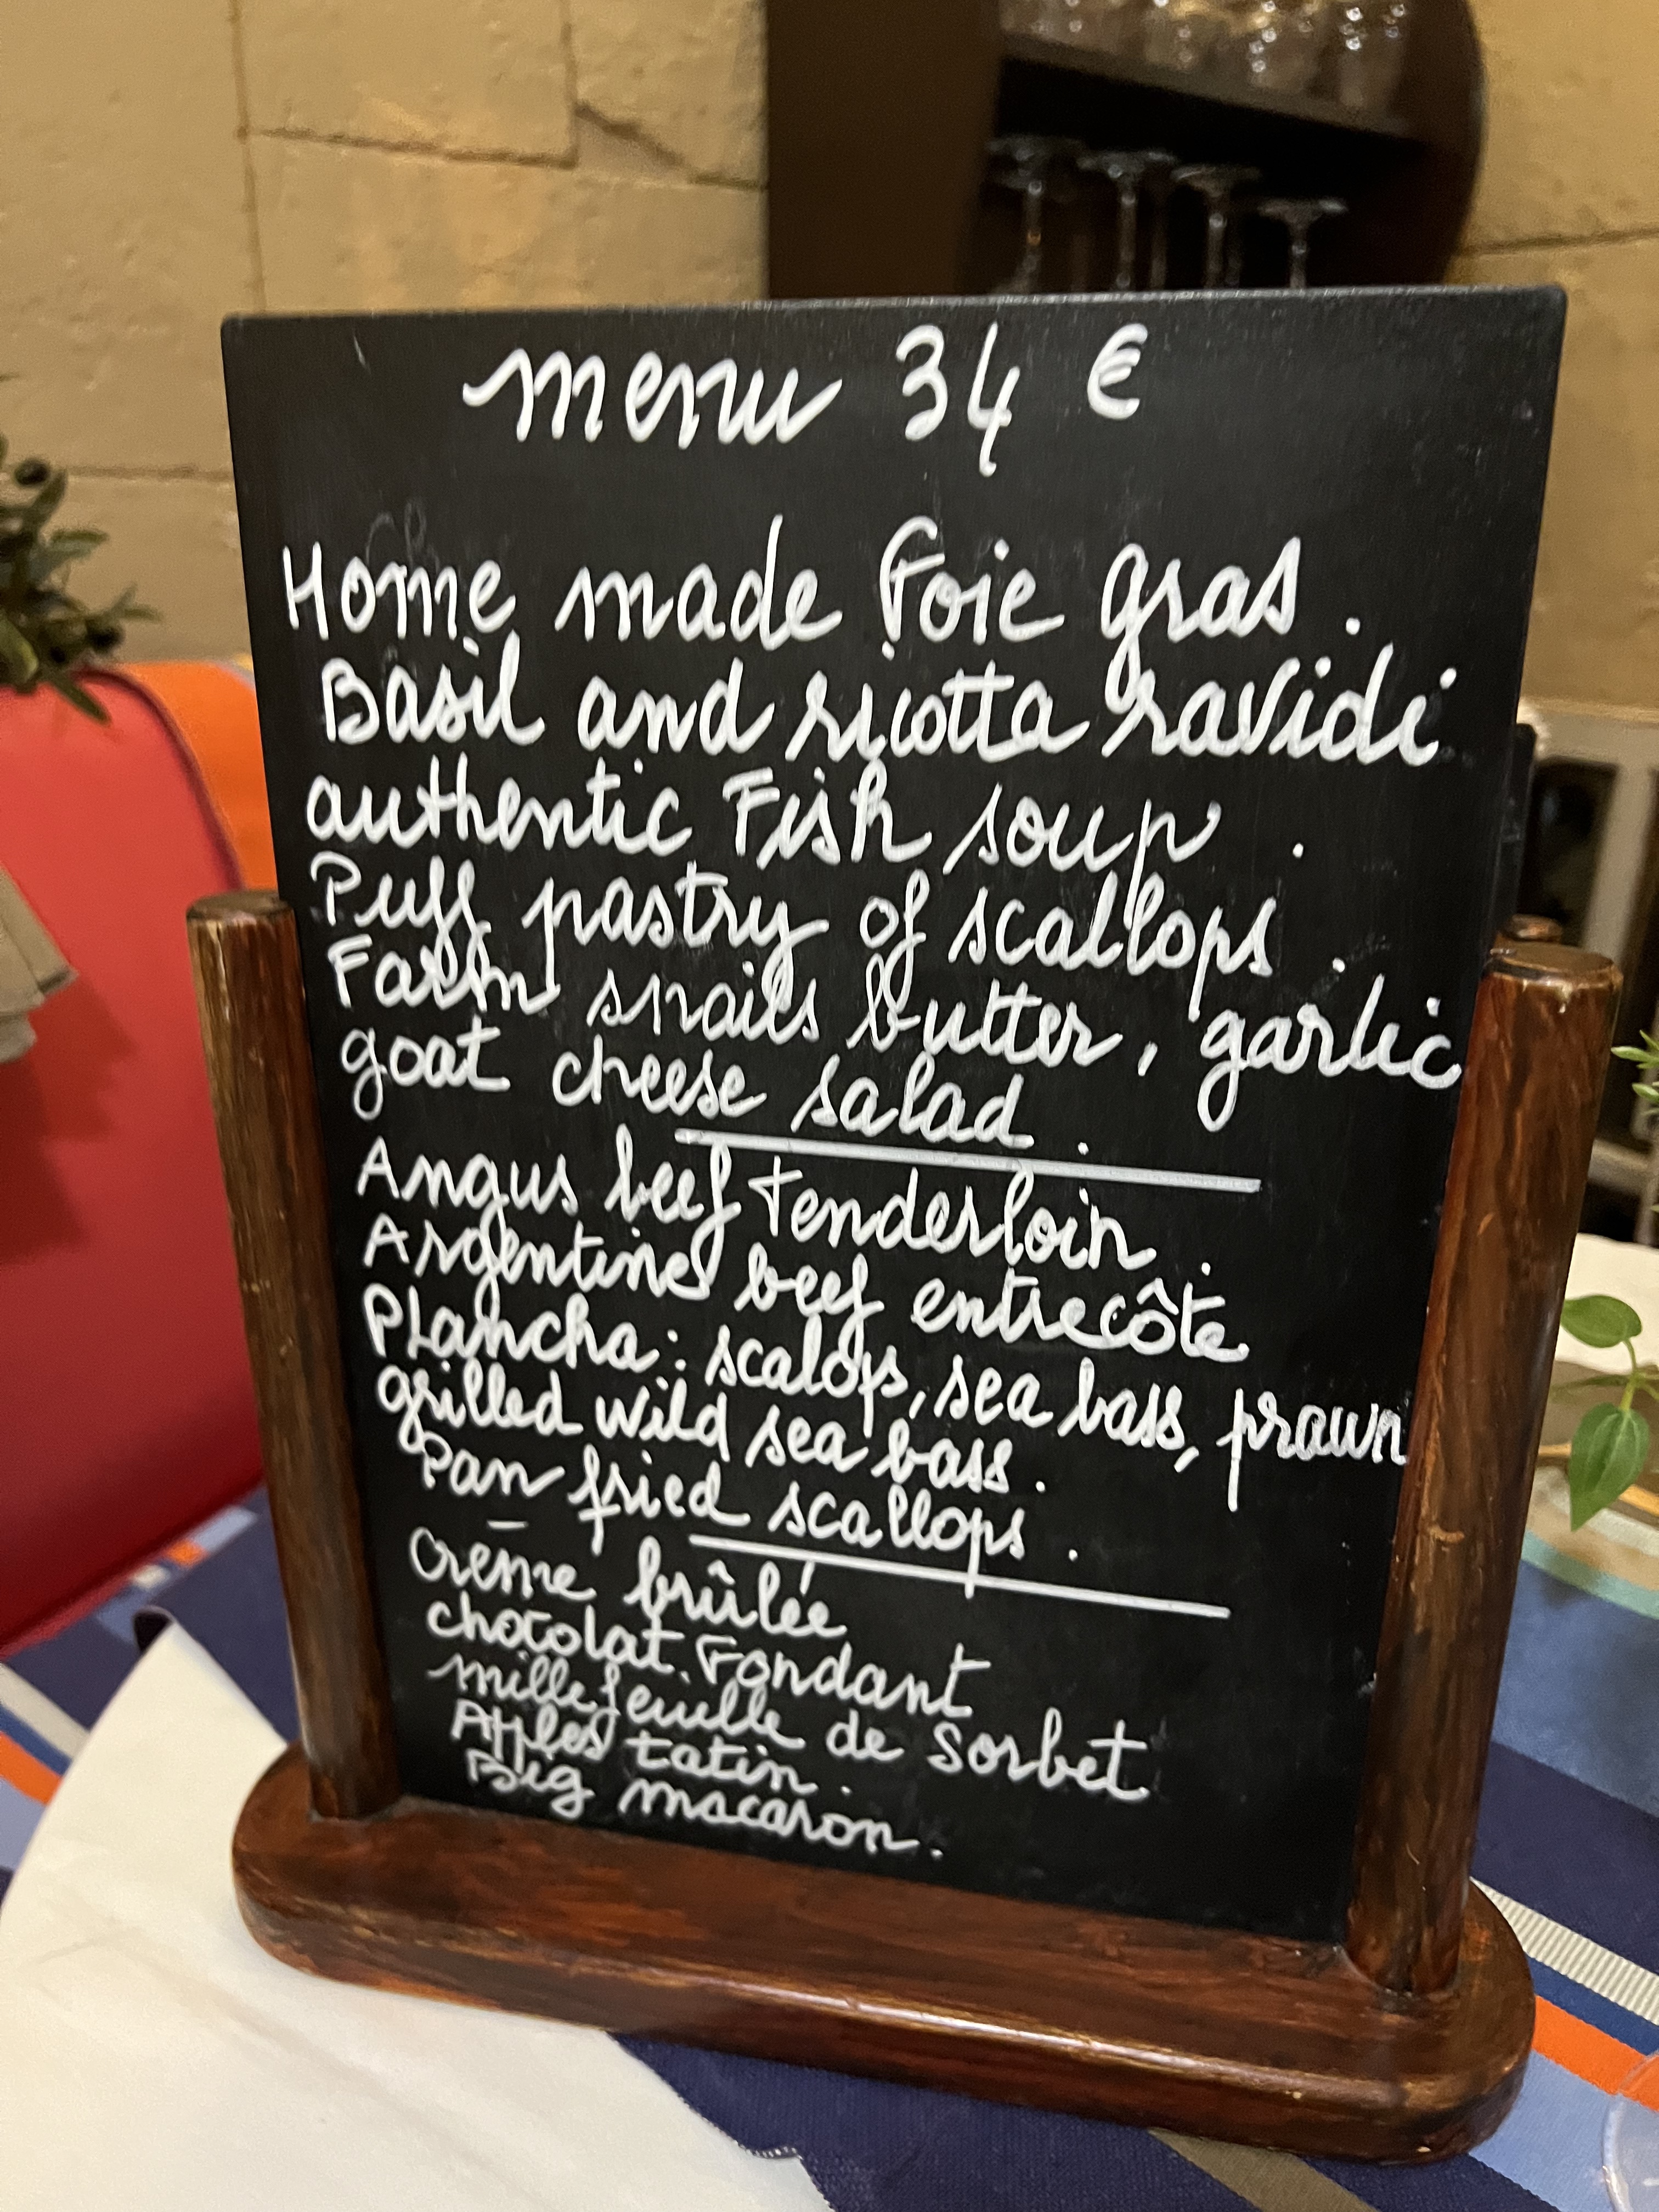 menu 34 €
Home made Foie gras.
Basil and ricotta ravioli
authentic Fish soup.
Puff pastry of scallops.
Farm snails butter, garlic
goat cheese salad.
Angus beef tenderloin.
Argentine beef entrecôte
Plancha: scalops, sea bass, prawn
grilled wild sea bass.
Pan fried scallops.
Crème brûlée
chocolat Fondant
millefeuille de Sorbet
Apples tatin.
Big macaron.